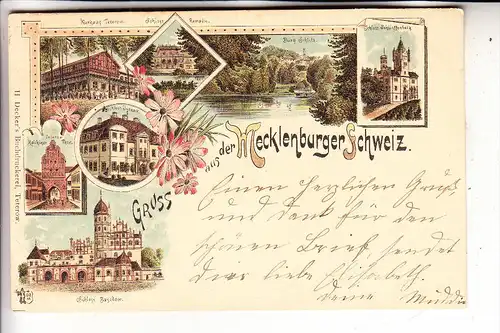 Kurhaus Teterow.
Schloss Remplin.
Burg Schlitz.
Schloss
Teterow
Malchiner Thor.
Gruss
aus
der Mecklenburger Schweiz.
H. Decker's Buchdruckerei, Teterow.
Schloss Basedow.
Einen herzlichen Gruß
und Dank für den
schönen Brief sendet
dir liebe Elisabeth.
deine